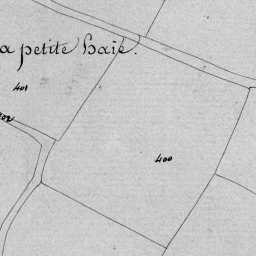 a petite haie.
401
202
400